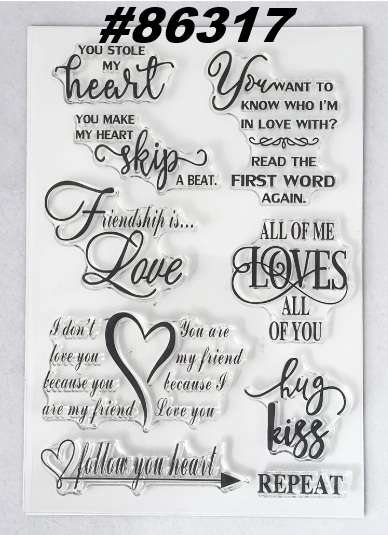 #86317
YOU STOLE
MY
heart
YOU MAKE
MY HEART
skip
A BEAT.
Friendship is...
Love
I don't
love you
because you
are my friend
You are
my friend
because I
Love you
follow you heart
You WANT TO
KNOW WHO I'M
IN LOVE WITH?
READ THE
FIRST WORD
AGAIN.
ALL OF ME
LOVES
ALL
OF YOU
hug
kiss
REPEAT